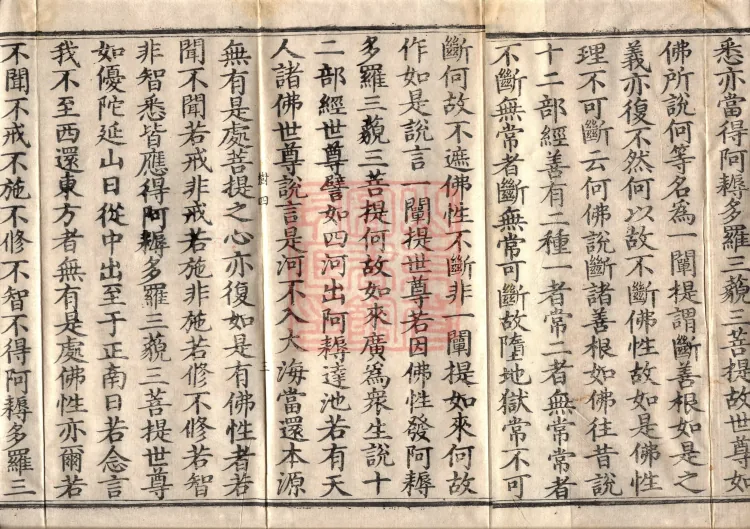 悉亦當得阿耨多羅三藐三菩提故世尊如
佛所說何等名為一闡提謂斷善根如是之
義亦復不然何以故不斷佛性故如是佛性
理不可斷云何佛說斷諸善根如佛往昔說
十二部經善有二種一者常二者無常常者
不斷無常者斷無常可斷故墮地獄常不可
斷何故不遮佛性不斷非一闡提如來何故
作如是說言一闡提世尊若因佛性發阿耨
多羅三藐三菩提何故如來廣為衆生說十
二部經世尊譬如四河出阿耨達池若有天
人諸佛世尊說言是河不入大海當還本源
無有是處菩提之心亦復如是有佛性者若
樹四
三
聞不聞若戒非戒若施非施若修不修若智
非智悉皆應得阿耨多羅三藐三菩提世尊
如優陀延山日從中出至于正南日若念言
我不至西還東方者無有是處佛性亦爾若
不聞不戒不施不修不智不得阿耨多羅三